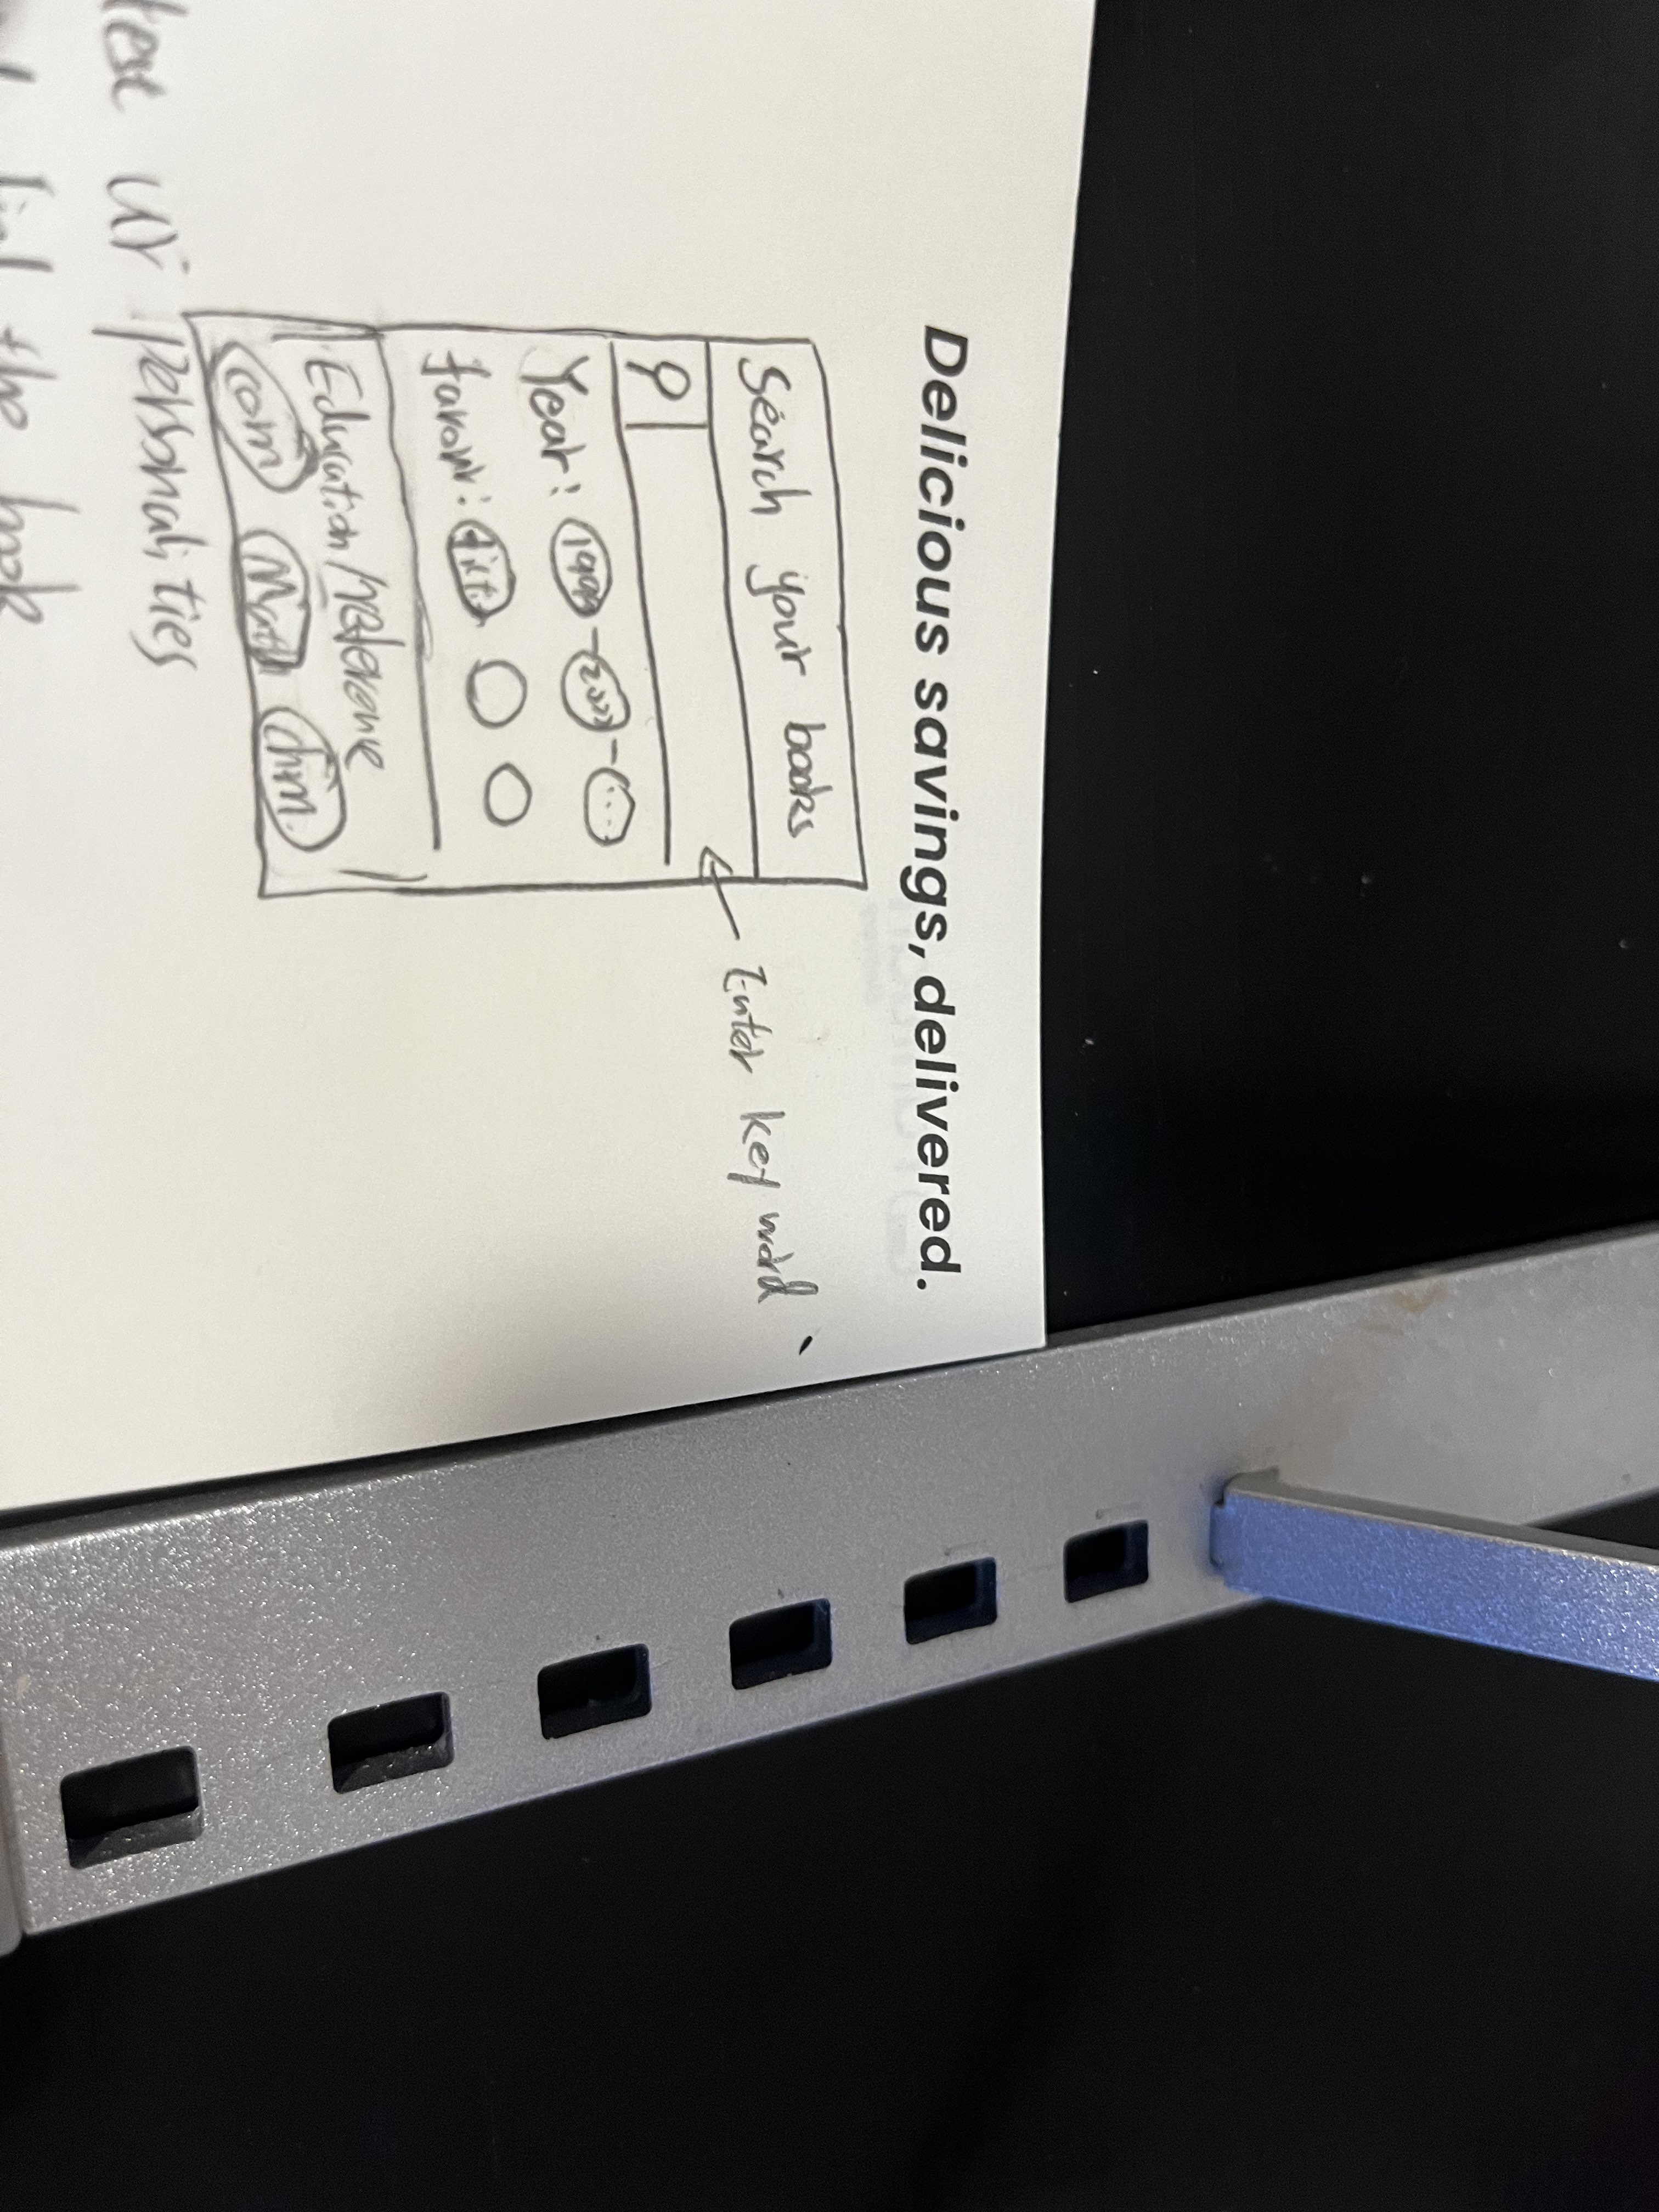 Delicious savings, delivered.
Search your books
Enter key word
Year: 1999 - 2022 - ...
favour: fict.
Education/reference
com Math chm.
test ur personalities
find the book